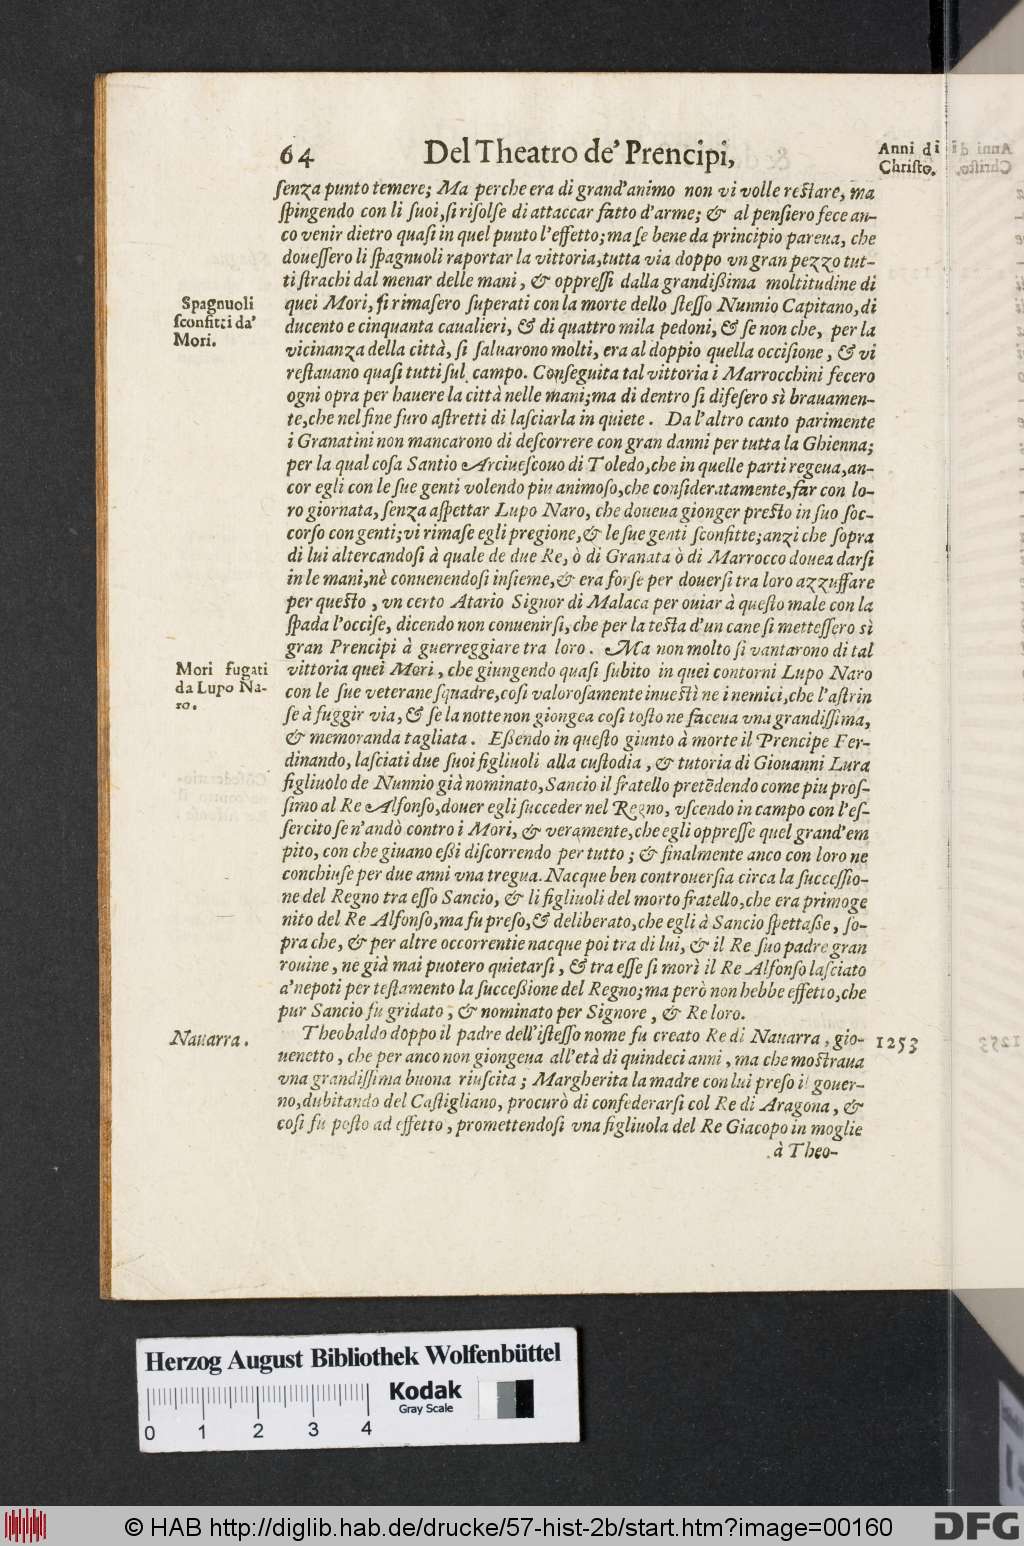 64 Del Theatro de' Prencipi, Anni di
Christo.
ſenza punto temere; Ma perche era di grand'animo non vi volle reſtare, ma
ſpingendo con li ſuoi, ſi riſolſe di attaccar fatto d'arme; & al penſiero fece an-
co venir dietro quaſi in quel punto l'effetto; ma ſe bene da principio pareua, che
doueſſero li ſpagnuoli raportar la vittoria, tutta via doppo vn gran pezzo tut-
ti ſtrachi dal menar delle mani, & oppreſſi dalla grandißima moltitudine di
Spagnuoli
ſconfitti da'
Mori.
quei Mori, ſi rimaſero ſuperati con la morte dello ſteſſo Nunnio Capitano, di
ducento e cinquanta caualieri, & di quattro mila pedoni, & ſe non che, per la
vicinanza della città, ſi ſaluarono molti, era al doppio quella occiſione, & vi
reſtauano quaſi tutti ſul campo. Conſeguita tal vittoria i Marrocchini fecero
ogni opra per hauere la città nelle mani; ma di dentro ſi difeſero sì brauamen-
te, che nel fine furo aſtretti di laſciarla in quiete. Da l'altro canto parimente
i Granatini non mancarono di deſcorrere con gran danni per tutta la Ghienna;
per la qual coſa Santio Arciueſcouo di Toledo, che in quelle parti regeua, an-
cor egli con le ſue genti volendo piu animoſo, che conſideratamente, far con lo-
ro giornata, ſenza aſpettar Lupo Naro, che doueua gionger preſto in ſuo ſoc-
corſo con genti; vi rimaſe egli pregione, & le ſue genti ſconfitte; anzi che ſopra
di lui altercandoſi à quale de due Re, ò di Granata ò di Marrocco douea darſi
in le mani, nè conuenendoſi inſieme, & era forſe per douerſi tra loro azzuffare
per queſto, vn certo Atario Signor di Malaca per ouiar à queſto male con la
ſpada l'occiſe, dicendo non conuenirſi, che per la teſta d'un cane ſi metteſſero sì
gran Prencipi à guerreggiare tra loro. Ma non molto ſi vantarono di tal
Mori fugati
da Lupo Na-
ro.
vittoria quei Mori, che giungendo quaſi ſubito in quei contorni Lupo Naro
con le ſue veterane ſquadre, coſi valoroſamente inueſtì ne i nemici, che l'aſtrin
ſe à fuggir via, & ſe la notte non giongea coſi toſto ne faceua vna grandiſſima,
& memoranda tagliata. Eßendo in queſto giunto à morte il Prencipe Fer-
dinando, laſciati due ſuoi figliuoli alla cuſtodia, & tutoria di Giouanni Lura
figliuolo de Nunnio già nominato, Sancio il fratello pretẽdendo come piu proſ-
ſimo al Re Alfonſo, douer egli ſucceder nel Regno, vſcendo in campo con l'eſ-
ſercito ſe n'andò contro i Mori, & veramente, che egli oppreſſe quel grand'em
pito, con che giuano eßi diſcorrendo per tutto; & finalmente anco con loro ne
conchiuſe per due anni vna tregua. Nacque ben controuerſia circa la ſucceſſio-
ne del Regno tra eſſo Sancio, & li figliuoli del morto fratello, che era primoge
nito del Re Alfonſo, ma fu preſo, & deliberato, che egli à Sancio ſpettaße, ſo-
pra che, & per altre occorrentie nacque poi tra di lui, & il Re ſuo padre gran
rouine, ne già mai puotero quietarſi, & tra eſſe ſi morì il Re Alfonſo laſciato
a'nepoti per teſtamento la ſucceßione del Regno; ma però non hebbe effetto, che
pur Sancio fu gridato, & nominato per Signore, & Re loro.
Nauarra.
Theobaldo doppo il padre dell'iſteſſo nome fu creato Re di Nauarra, gio- 1253
uenetto, che per anco non giongeua all'età di quindeci anni, ma che moſtraua
vna grandiſſima buona riuſcita; Margherita la madre con lui preſo il gouer-
no, dubitando del Caſtigliano, procurò di confederarſi col Re di Aragona, &
coſi fu poſto ad effetto, promettendoſi vna figliuola del Re Giacopo in moglie
à Theo-
Herzog August Bibliothek Wolfenbüttel
Kodak
Gray Scale
0 1 2 3 4
© HAB http://diglib.hab.de/drucke/57-hist-2b/start.htm?image=00160
DFG